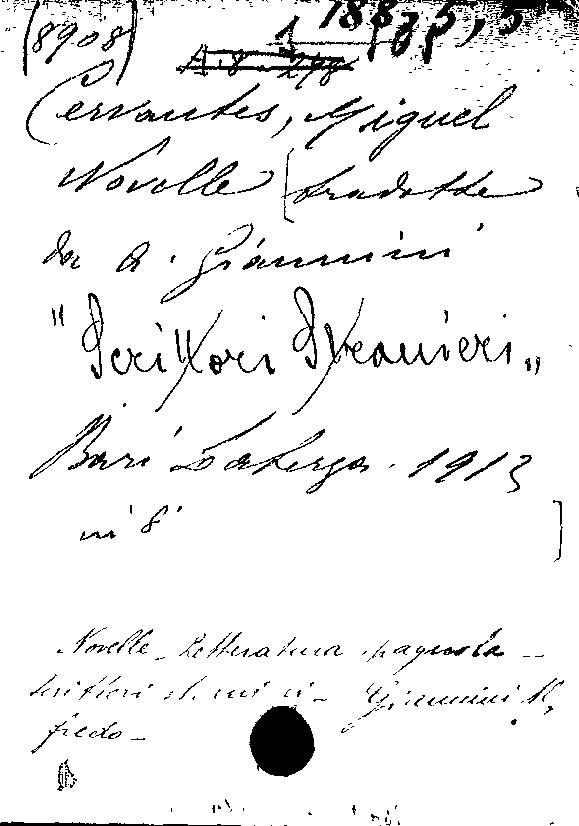 (8908)
Cervantes, Miguel
Novelle [tradotte
da A. Giannini
"Scrittori Stranieri"
Bari Laterza. 1913
in 8° ]
Novelle - Letteratura spagnola -
Giannini Al,
fredo -